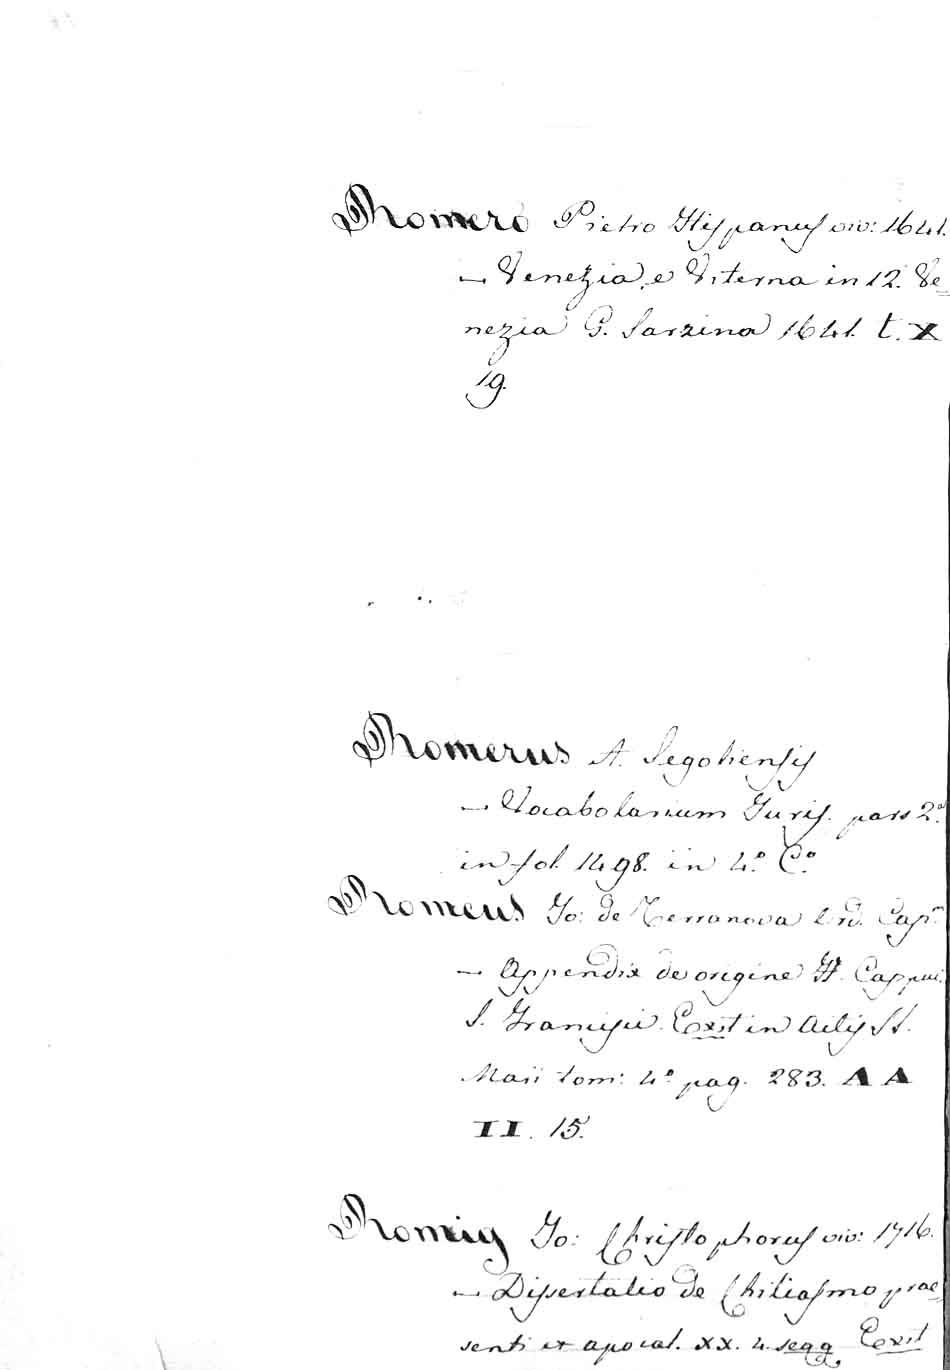 Romero Pietro Hispanus viv: 1641.
— Venezia, e Viterna in 12. Ve=
nezia G. Sarzina 1641. t. X
19.
Romerus A. Segobiensis
— Vocabolarium Juris. pars 2.a
in fol. 1498. in 4.o C.o
Romeus Jo: de Terranova Ord. Cap.
— Appendix de origine FF. Cappuc.
S. Francisci. Exit in Actis SS.
Maii tom: 4.o pag. 283. AA
II. 15.
Romig Jo: Christophorus viv: 1716.
— Dissertatio de Chiliasmo prae=
senti ex apocal. XX. 4. seqq Exit